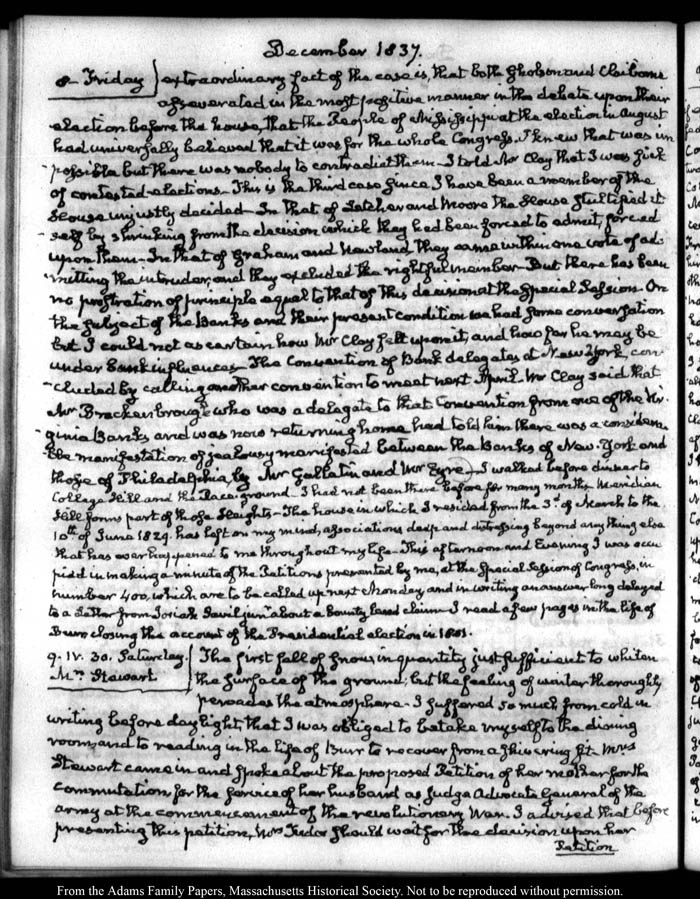 December 1837.
8. Friday } extraordinary fact of the case is, that both Gholson and Claiborne
asseverated in the most positive manner in the debate upon their
election before the house, that the People of Mississippi at the election in August
had universally believed that it was for the whole Congress. I knew that was im
possible but there was nobody to contradict them. I told Mr Clay that I was sick
of contested elections. This is the third case since I have been a member of the
House unjustly decided. In that of Letcher and Moore the House stultified it
self by shrinking from the decision which they had been forced to admit, forced
upon them. In that of Graham and Newland they came within one vote of ad
mitting the intruder, and they excluded the rightful member. But there has been
no prostration of principle equal to that of this decision at the Special Session. On
the subject of the Banks and their present condition we had some conversation
but I could not ascertain how Mr Clay felt upon it, and how far he may be
under bank influences. The Convention of Bank delegates at New York, con
cluded by calling another convention to meet next April. Mr Clay said that
Mr Brackenbrough who was a delegate to that Convention from one of the Vir
ginia Banks and was now returning home had told him there was a considera
ble manifestation of jealousy manifested between the Banks of New-York and
those of Philadelphia, by Mr Gallatin and Mr Eyre. I walked before dinner to
College Hill and the Race ground. I had not been there before for many months. Meridian
Hill forms part of those Heights. The house in which I resided from the 3d of March to the
10th of June 1829. has left on my mind, associations deep and distressing beyond any thing else
that has ever happened to me throughout my life. This afternoon and Evening I was occu
pied in making a minute of the Petitions presented by me, at the Special Session of Congress, in
number 400, which are to be called up next Monday and in writing an answer long delayed
to a Letter from Josiah junr about a bounty land claim. I read a few pages in the life of
Burr closing the account of the Presidential election in 1801.
9. IV. 30. Saturday. } The first fall of snow, in quantity just sufficient to whiten
Mrs Stewart the surface of the ground; but the feeling of winter thoroughly
pervades the atmosphere. I suffered so much from cold in
writing before daylight, that I was obliged to betake myself to the dining
room, and to reading in the life of Burr to recover from a shivering fit. Mrs
Stewart came in and spoke about the proposed Petition of her mother for the
commutation for the service of her husband as Judge Advocate General of the
army at the commencement of the revolutionary War. I advised that before
presenting this petition, Mrs Tudor should wait for the decision upon her
Petition
From the Adams Family Papers, Massachusetts Historical Society. Not to be reproduced without permission.